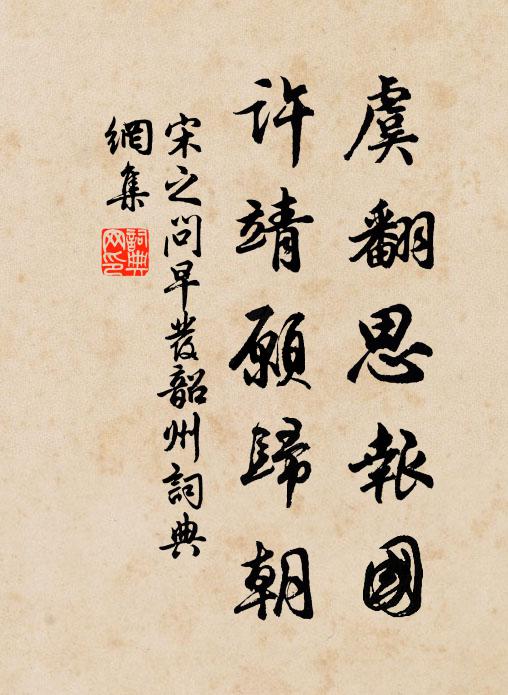 虞翻思報國
許靖願歸朝
宋之問早發韶州詞典
網集
詞典
网印